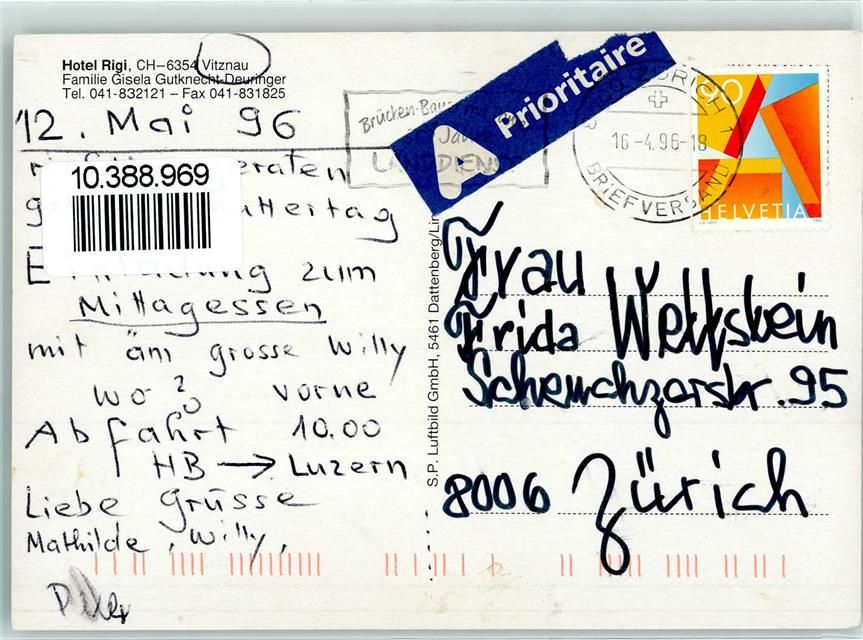 Hotel Rigi, CH–6354 Vitznau
Familie Gisela Gutknecht-Deuringer
Tel. 041-832121 – Fax 041-831825
12. Mai 96
10.388.969
zum
Mittagessen
mit äm grosse Willy
wo ? vorne
Abfahrt 10.00
HB → Luzern
Liebe Grüsse
Mathilde, Willy,
S.P. Luftbild GmbH, 5461 Dattenberg/Lin
Brücken-Bauer
LANDDIENST
A Prioritaire
ZÜRICH 1
16-4.96-18
BRIEFVERSAND
90
HELVETIA
Frau
Frida Wettstein
Scheuchzerstr. 95
8006 Zürich